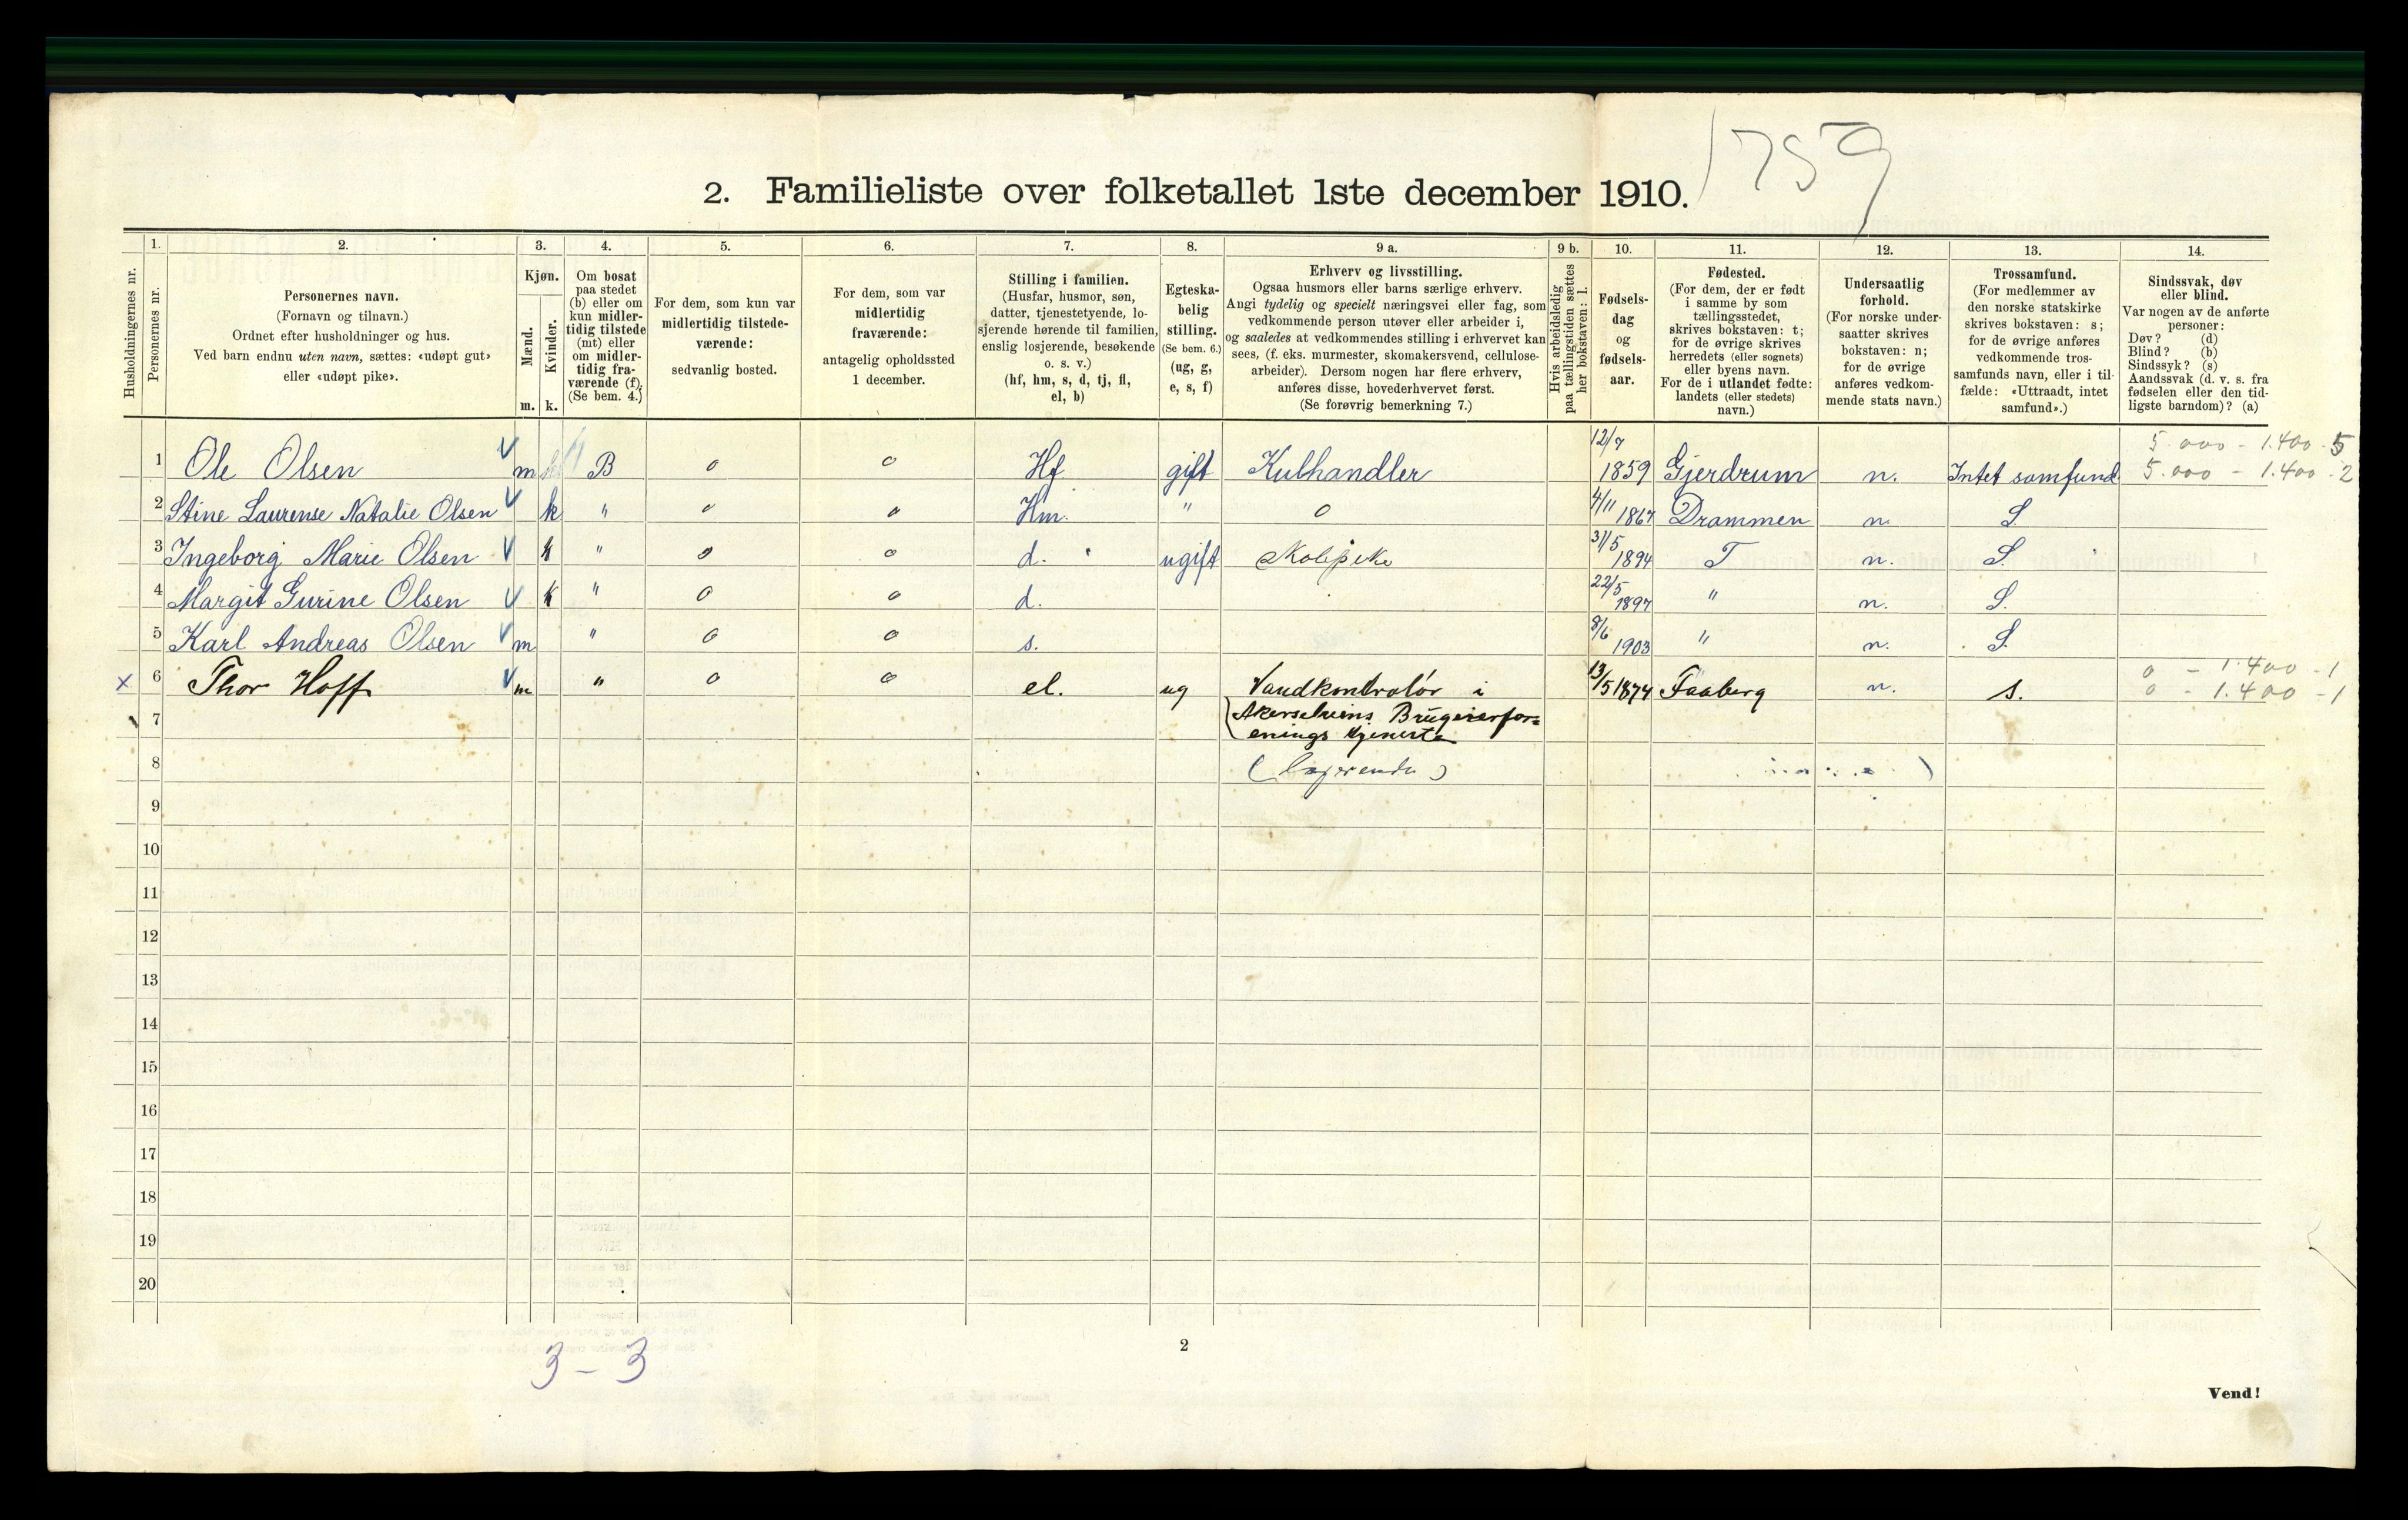 1759
2. Familieliste over folketallet 1ste december 1910.
Husholdningernes nr.
1. Personernes nr.
2. Personernes navn.
(Fornavn og tilnavn.)
Ordnet efter husholdninger og hus.
Ved barn endnu uten navn, sættes: «udøpt gut»
eller «udøpt pike».
3. Kjøn.
Mænd. m.
Kvinder. k.
4. Om bosat
paa stedet
(b) eller om
kun midler-
tidig tilstede
(mt) eller
om midler-
tidig fra-
værende (f).
(Se bem. 4.)
5. For dem, som kun var
midlertidig tilstede-
værende:
sedvanlig bosted.
6. For dem, som var
midlertidig
fraværende:
antagelig opholdssted
1 december.
7. Stilling i familien.
(Husfar, husmor, søn,
datter, tjenestetyende, lo-
sjerende hørende til familien,
enslig losjerende, besøkende
o. s. v.)
(hf, hm, s, d, tj, fl,
el, b)
8. Egteska-
belig
stilling.
(Se bem. 6.)
(ug, g,
e, s, f)
9 a. Erhverv og livsstilling.
Ogsaa husmors eller barns særlige erhverv.
Angi tydelig og specielt næringsvei eller fag, som
vedkommende person utøver eller arbeider i,
og saaledes at vedkommendes stilling i erhvervet kan
sees, (f. eks. murmester, skomakersvend, cellulose-
arbeider). Dersom nogen har flere erhverv,
anføres disse, hovederhvervet først.
(Se forøvrig bemerkning 7.)
9 b. Hvis arbeidsledig
paa tællingstiden sættes
her bokstaven: l.
10. Fødsels-
dag
og
fødsels-
aar.
11. Fødested.
(For dem, der er født
i samme by som
tællingsstedet,
skrives bokstaven: t;
for de øvrige skrives
herredets (eller sognets)
eller byens navn.
For de i utlandet fødte:
landets (eller stedets)
navn.)
12. Undersaatlig
forhold.
(For norske under-
saatter skrives
bokstaven: n;
for de øvrige
anføres vedkom-
mende stats navn.)
13. Trossamfund.
(For medlemmer av
den norske statskirke
skrives bokstaven: s;
for de øvrige anføres
vedkommende tros-
samfunds navn, eller i til-
fælde: «Uttraadt, intet
samfund».)
14. Sindssvak, døv
eller blind.
Var nogen av de anførte
personer:
Døv? (d)
Blind? (b)
Sindssyk? (s)
Aandssvak (d. v. s. fra
fødselen eller den tid-
ligste barndom)? (a)
5.000 - 1.400 - 5
1 Ole Olsen m B o o Hf gift Kulhandler 12/7 1859 Gjerdrum n. Intet samfund 5.000 - 1.400 - 2
2 Stine Laurense Natalie Olsen k " o o Hm. " o 4/11 1867 Drammen n. S.
3 Ingeborg Marie Olsen k " o o d. ugift Skolepike 31/5 1894 T n. S.
4 Margit Gurine Olsen k " o o d. 22/5 1897 " n. S.
5 Karl Andreas Olsen m " o o s. 8/6 1903 " n. S.
0 - 1.400 - 1
x 6 Thor Hoff m " o o el. ug Vandkontrolør i 13/5 1874 Faaberg n. s. 0 - 1.400 - 1
7 Akerselvens Brugeierfor=
enings tjeneste
8
9
10
11
12
13
14
15
16
17
18
19
20
3 - 3
2
Vend!